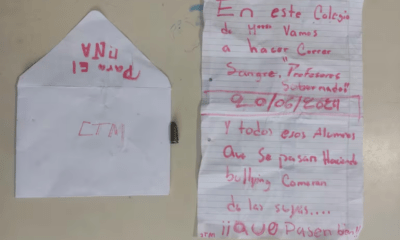 Para El
UNA
CTM
En este Colegio
de Vamos
a hacer Correr
Sangre, "Profesores
Sobornados"
20/06/2024
Y todos esos Alumnos
Que Se pasan Haciendo
bullping Comeran
de las suyas....
¡¡QUE Pasen